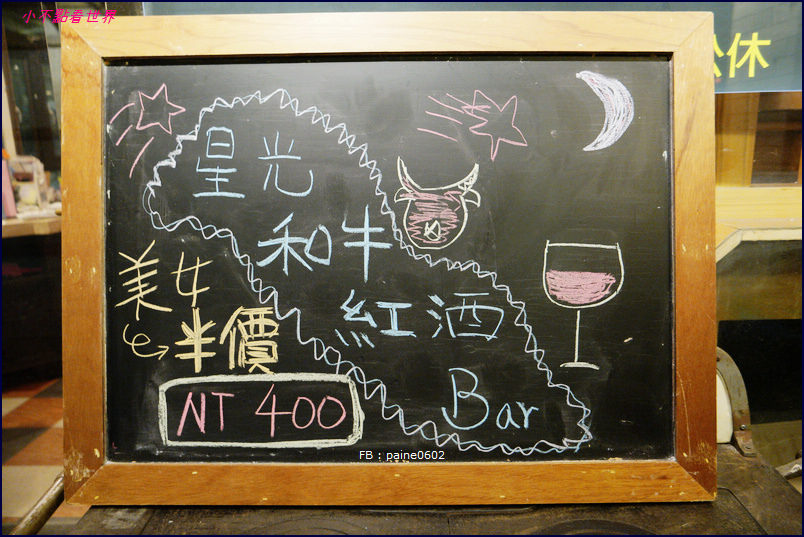 小不點看世界
休
星光
和牛
紅酒
Bar
美女
半價
NT 400
FB : paine0602